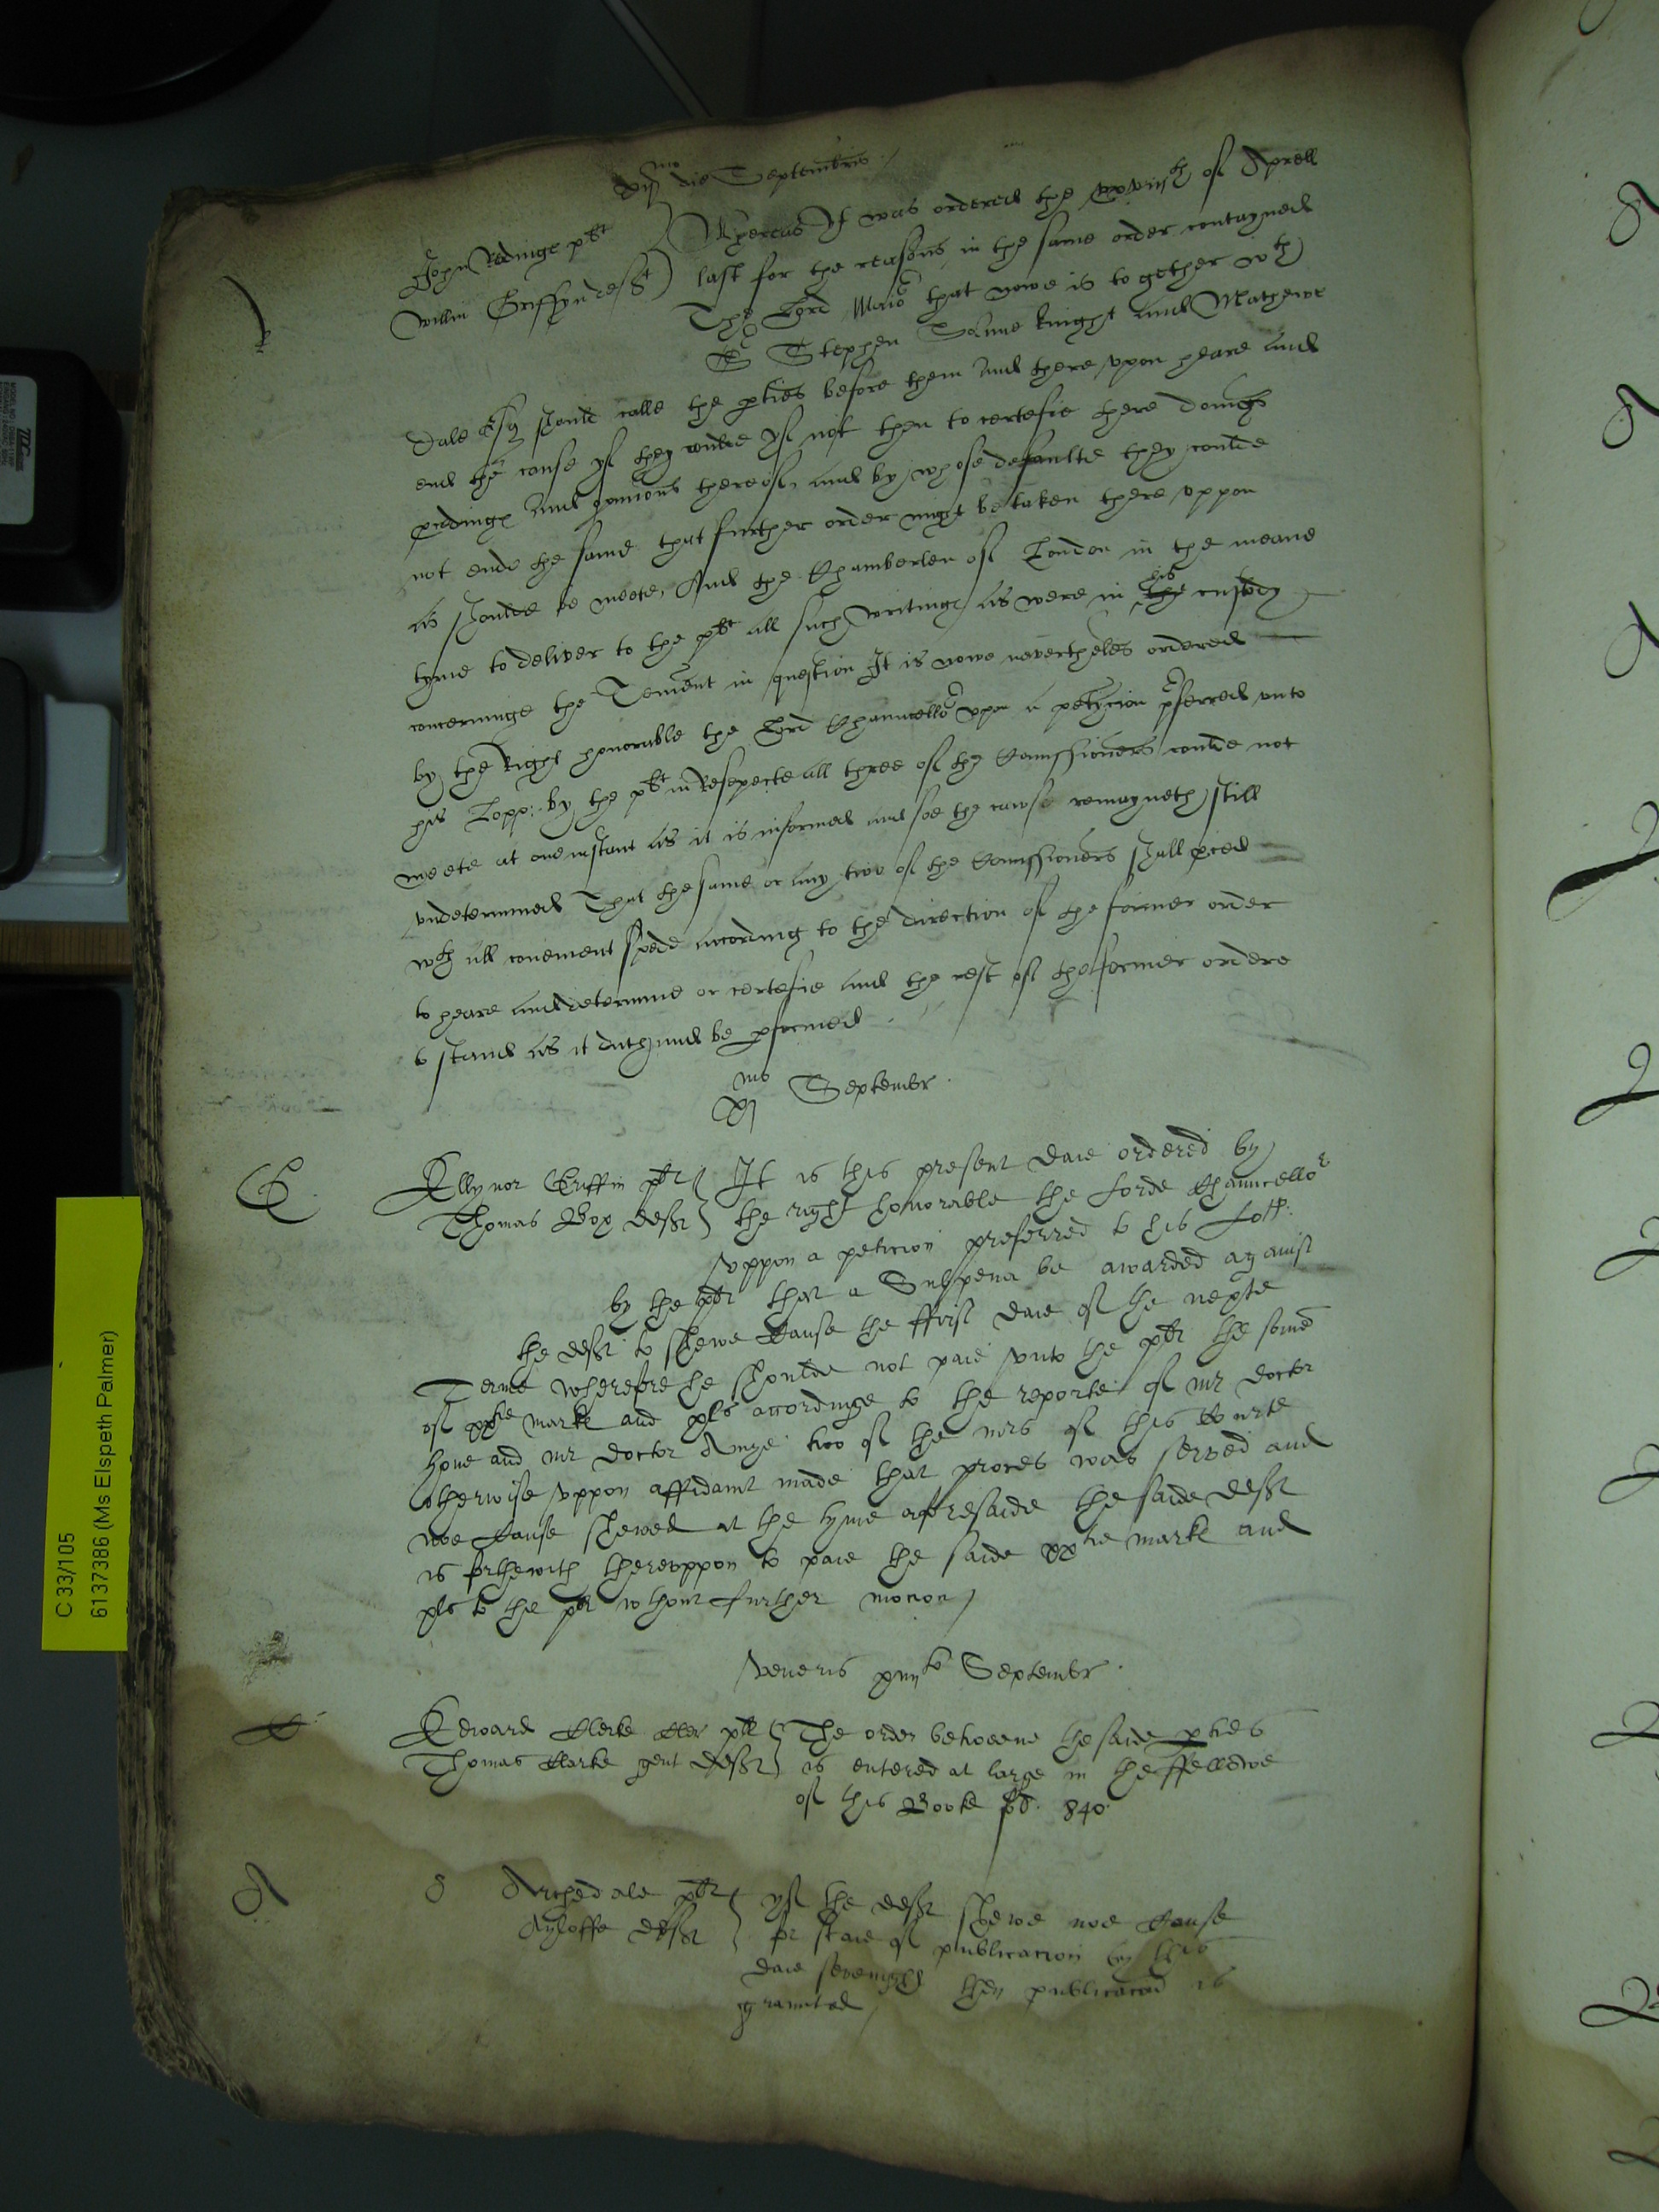 xij mo die Septembris
John Redinge plt } Whereas yt was ordered the xxviijth of Aprell
Willm Griffyn deft } last for the reasons in the same order contayned
The Lord Maior that nowe is to gether wth
Sr Stephen Slanne knight and Mathewe
Dale Esqr should calle the pties before them and there upon heare and
end the cause yf they coulde yf not then to certefie there doings
pcedings and opinions thereof, and by whose defaulte they coulde
not ende the same that further order might be taken there uppon
as shoulde be meete, And the Chamberlen of London in the meane
tyme to deliver to the plt all such writings as were in the his custody
concerninge the Tenemt in question It is nowe nevertheles ordered
by the Right honorable the Lord Chauncellor upon a petycion pferred unto
his Lopp: by the plt in Respecte all three of the Comissioners coulde not
meete at one instant as it is informed and soe the cawse remayneth still
undetermined That the same or any two of the Comissioners shall pceed
wth all convenient spede according to the direction of the former order
to heare and determine or certefie and the rest of the former ordere
to stand as it doth and be pformed
xj mo Septembr.
G
Ellynor Griffin plt } It is this present daie ordered by
Thomas Box deft } the right honorable the Lorde Chauncellor
uppon a peticion preferred to his Lopp:
by the plt that a Subpena be awarded against
the deft to shewe Cause the ffirst daie of the nexte
Terme wherefore he shoulde not paie unto the plt the some
of xxtie marke and xls accordinge to the reporte of mr doctor
hone and mr doctor Awnge two of the mrs of this Courte
otherwise uppon affidavit made that proces was served and
noe Cause shewed at the tyme aforesaide the saide deft
is forthewith thereuppon to paie the saide xxtie mark and
xls to the plt wthout further mocion
Veneris xiiijto Septembr.
C
Edward Clerke Cler plt } The order betweene the saide pties
Thomas Clarke gent deft } is entered at large in the ffellowe
of this Booke fo. 840.
A
Archedale plt } yf the deft shewe noe Cause
Ayloffe deft } for staie of publicacion by this
daie sevenight then publicacon is
graunted
C 33/105
6137386 (Ms Elspeth Palmer)